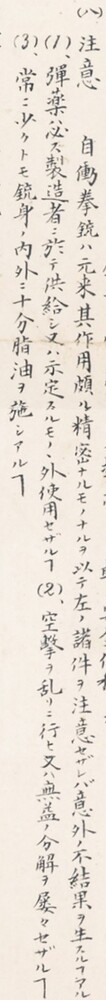 (八) 注意　自働拳銃ハ元来其作用頗ル精密ナルモノナルヲ以テ左ノ諸件ヲ注意セザレバ意外ノ不結果ヲ生スルヿアル
(1) 彈藥ハ必ス製造者ニ於テ供給シ又ハ示定スルモノヽ外使用セザルヿ (2)、空撃ヲ乱リニ行ヒ又ハ無益ノ分解ヲ屡々セザルヿ
(3)、常ニ少クトモ銃身ノ内外ニ十分脂油ヲ施シアルヿ